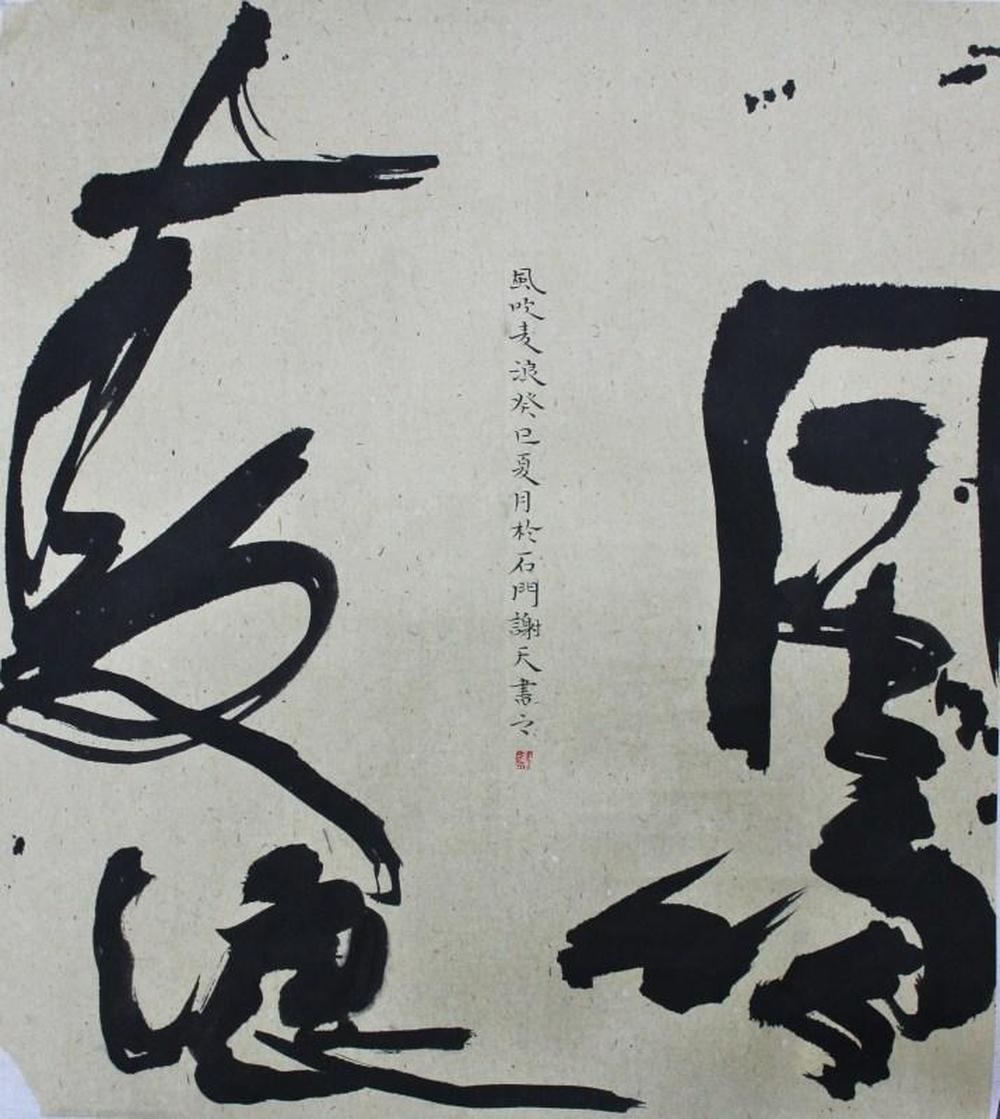 風吹
麦浪
風吹麦浪癸巳夏月於石門謝天書之